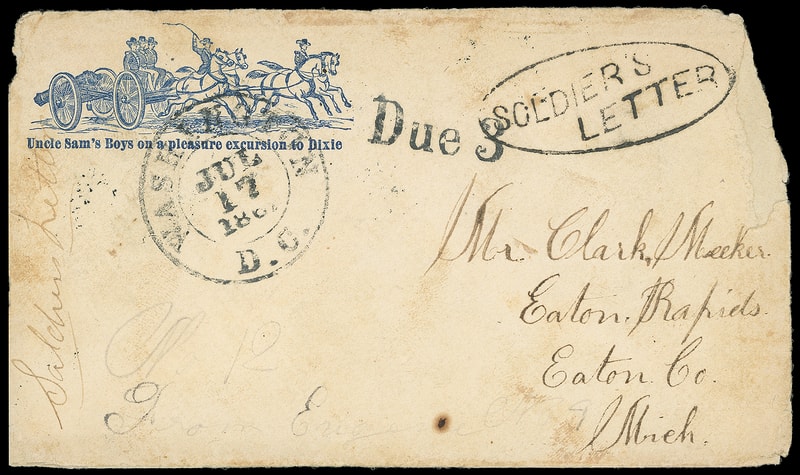 Uncle Sam's Boys on a pleasure excursion to Dixie
WASHINGTON
JUL
17
186
D.C.
Due 3
SOLDIER'S
LETTER
Soldiers Letter
Mr. Clark Meeker
Eaton Rapids
Eaton Co.
Mich.